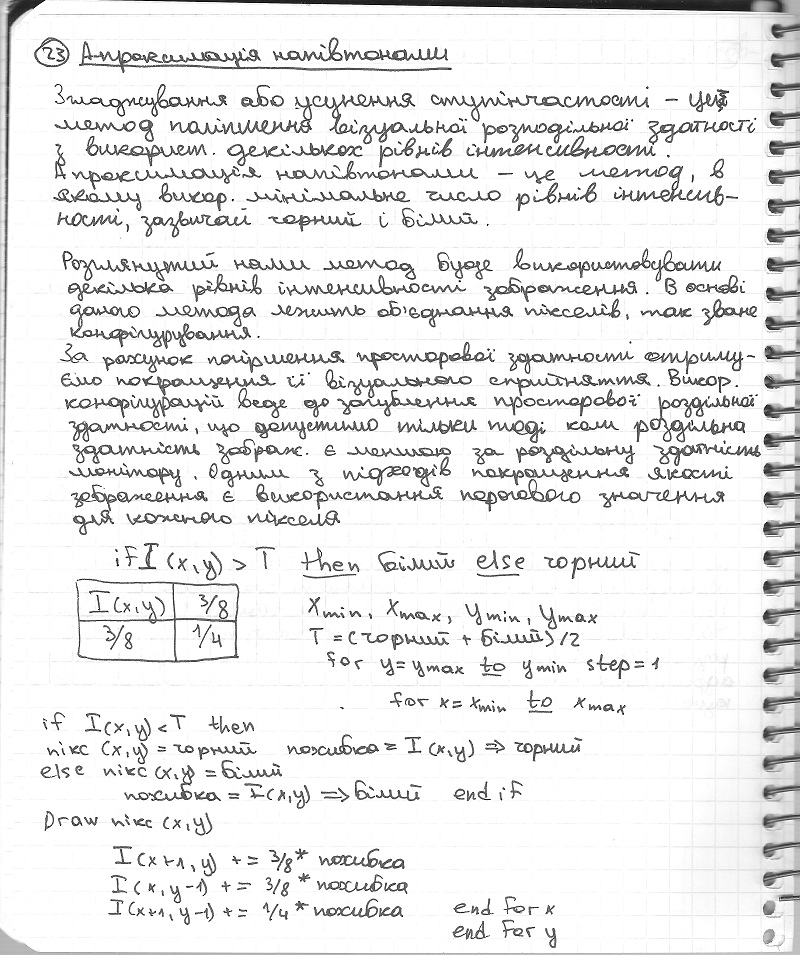 23 Апроксимація напівтонами
Згладжування або усунення ступінчастості – це
метод поліпшення візуальної розподільної здатності
з використ. декількох рівнів інтенсивності.
Апроксимація напівтонами – це метод, в
якому викор. мінімальне число рівнів інтенсив-
ності, зазвичай чорний і білий.
Розглянутий нами метод буде використовувати
декілька рівнів інтенсивності зображення. В основі
даного метода лежить об'єднання пікселів, так зване
конфігурування.
За рахунок погіршення просторової здатності отриму-
ємо покращення її візуального сприйняття. Викор.
конфігурацій веде до загублення просторової роздільної
здатності, що допустимо тільки тоді коли роздільна
здатність зображ. є меншою за роздільну здатність
монітору. Одним з підходів покращення якості
зображення є використання порогового значення
для кожного пікселя
if I(x,y) > T then білий else чорний
I(x,y) 3/8
3/8 1/4
Xmin, Xmax, Ymin, Ymax
T = (чорний + білий)/2
for y = ymax to ymin step = 1
for x = xmin to xmax
if I(x,y) < T then
пікс (x,y) = чорний похибка = I(x,y) => чорний
else пікс (x,y) = білий
похибка = I(x,y) => білий end if
Draw пікс (x,y)
I(x+1, y) += 3/8 * похибка
I(x, y-1) += 3/8 * похибка
I(x+1, y-1) += 1/4 * похибка end for x
end for y